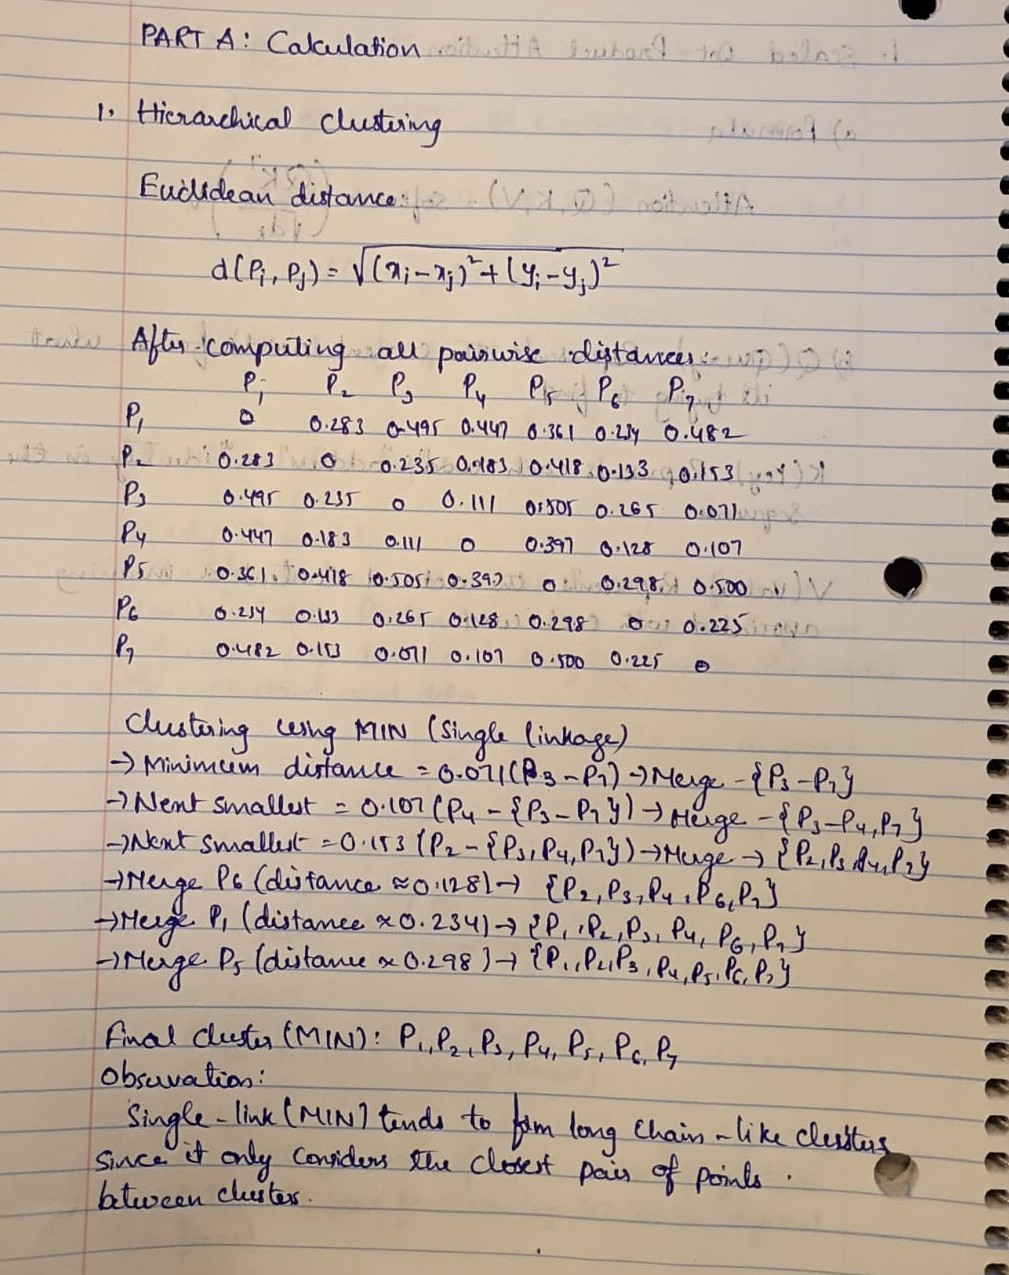 PART A: Calculation
1. Hierarchical clustering
Euclidean distance:
d(Pi, Pj) = √(xi-xj)²+(yi-yj)²
After computing all pairwise distances:
P1 P2 P3 P4 P5 P6 P7
P1 0 0.283 0.495 0.447 0.361 0.234 0.482
P2 0.283 0 0.235 0.183 0.418 0.133 0.153
P3 0.495 0.235 0 0.111 0.505 0.265 0.071
P4 0.447 0.183 0.111 0 0.397 0.128 0.107
P5 0.361 0.418 0.505 0.397 0 0.298 0.500
P6 0.234 0.133 0.265 0.128 0.298 0 0.225
P7 0.482 0.153 0.071 0.107 0.500 0.225 0
Clustering using MIN (Single linkage)
→ Minimum distance = 0.071 (P3-P7) → Merge - {P3-P7}
→ Next smallest = 0.107 (P4 - {P3-P7}) → Merge - {P3-P4,P7}
→ Next smallest = 0.153 (P2 - {P3,P4,P7}) → Merge → {P2,P3,P4,P7}
→ Merge P6 (distance ≈ 0.128) → {P2,P3,P4,P6,P7}
→ Merge P1 (distance ≈ 0.234) → {P1,P2,P3,P4,P6,P7}
→ Merge P5 (distance ≈ 0.298) → {P1,P2,P3,P4,P5,P6,P7}
Final cluster (MIN): P1,P2,P3,P4,P5,P6,P7
Observation:
Single-link (MIN) tends to form long chain-like clusters
since it only considers the closest pair of points.
between clusters.